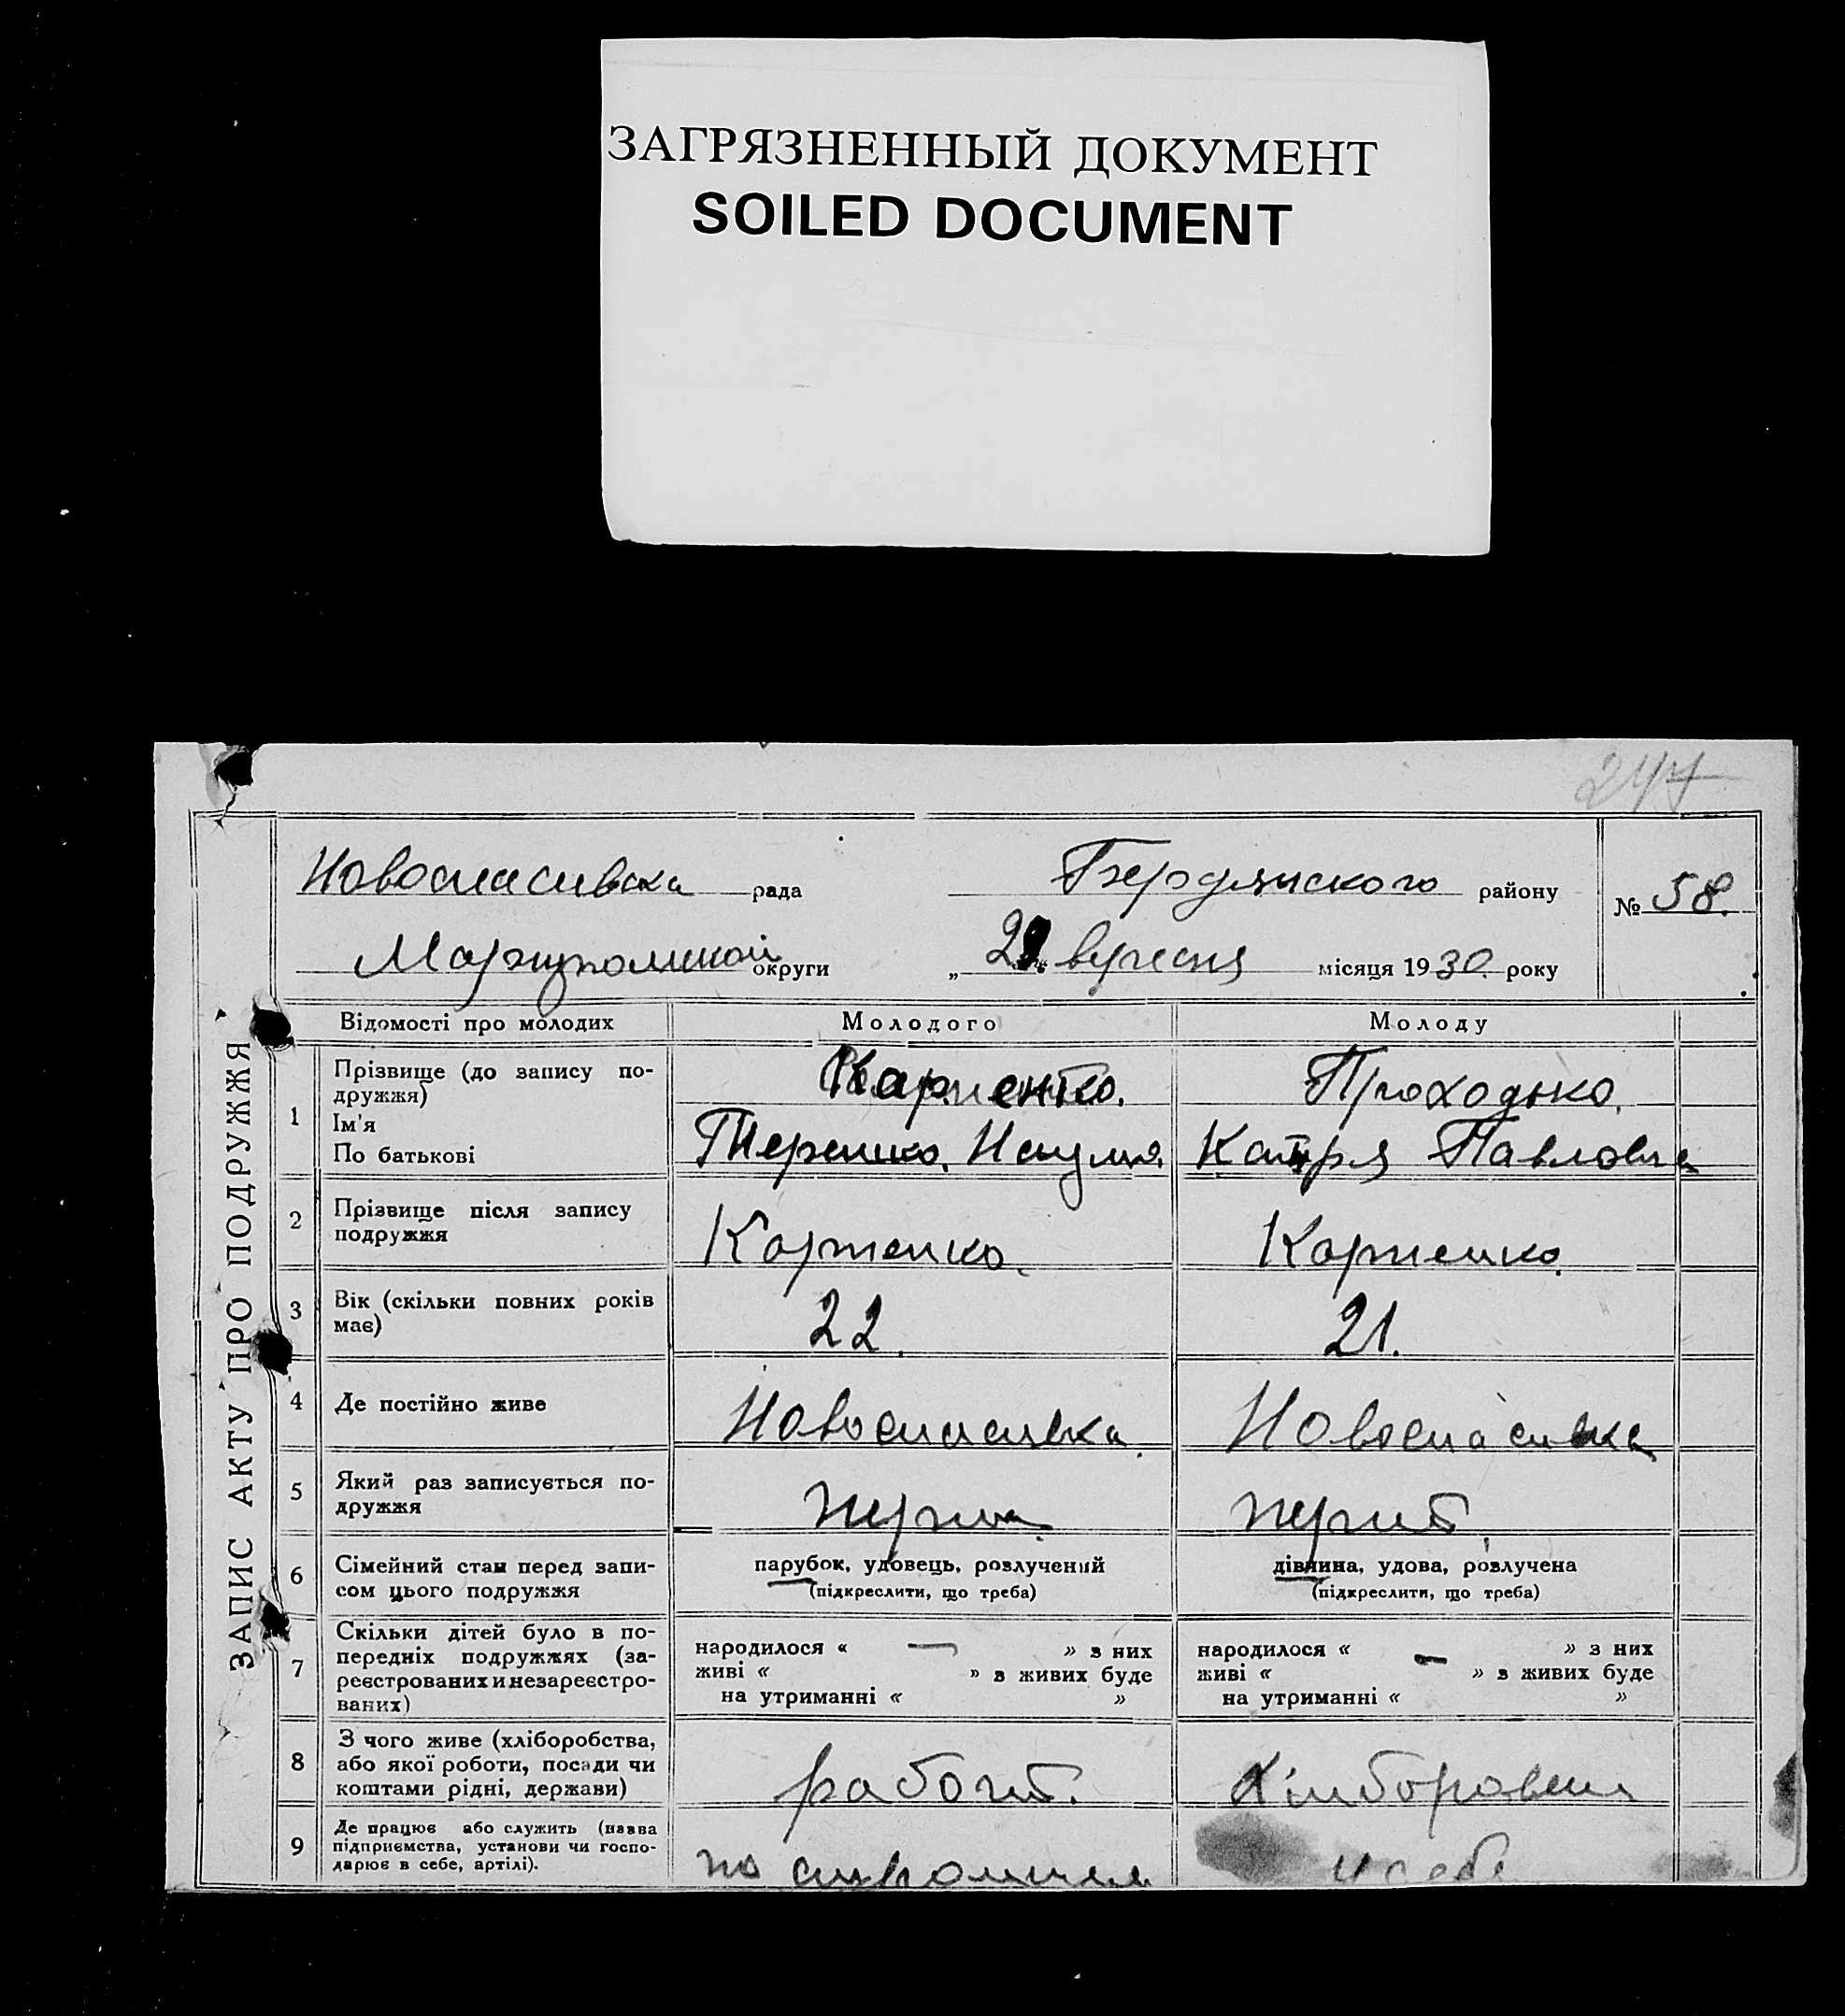 ЗАГРЯЗНЕННЫЙ ДОКУМЕНТ
SOILED DOCUMENT
247
Новоспасивска рада Бердянського району № 58.
округи „ вересня місяця 1930. року
ЗАПИС АКТУ ПРО ПОДРУЖЖЯ
Відомості про молодих Молодого Молоду
1 Прізвище (до запису по-
дружжя)
Ім'я
По батькові
Проходько.
Катря Павловна
2 Прізвище після запису
подружжя
Карпенко. Карпенко.
3 Вік (скільки повних років
має)
22. 21.
4 Де постійно живе Новоспасивка. Новоспасивка
5 Який раз записується по-
дружжя
6 Сімейний стан перед запи-
сом цього подружжя
парубок, удовець, розлучений дівчина, удова, розлучена
(підкреслити, що треба) (підкреслити, що треба)
7 Скільки дітей було в по-
передніх подружжях (за-
реєстрованих и незареєстро-
ваних)
народилося « — » з них народилося « — » з них
живі « » з живих буде живі « » з живих буде
на утриманні « » на утриманні « »
8 З чого живе (хліборобства,
або якої роботи, посади чи
коштами рідні, держави)
9 Де працює або служить (назва
підприємства, установи чи госпо-
дарює в себе, артілі).